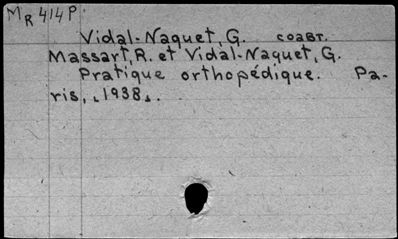 MR 414 P.
Vidal-Naquet, G. соавт.
Massart, R. et Vidal-Naquet, G.
Pratique orthopédique. Pa-
ris, 1938.